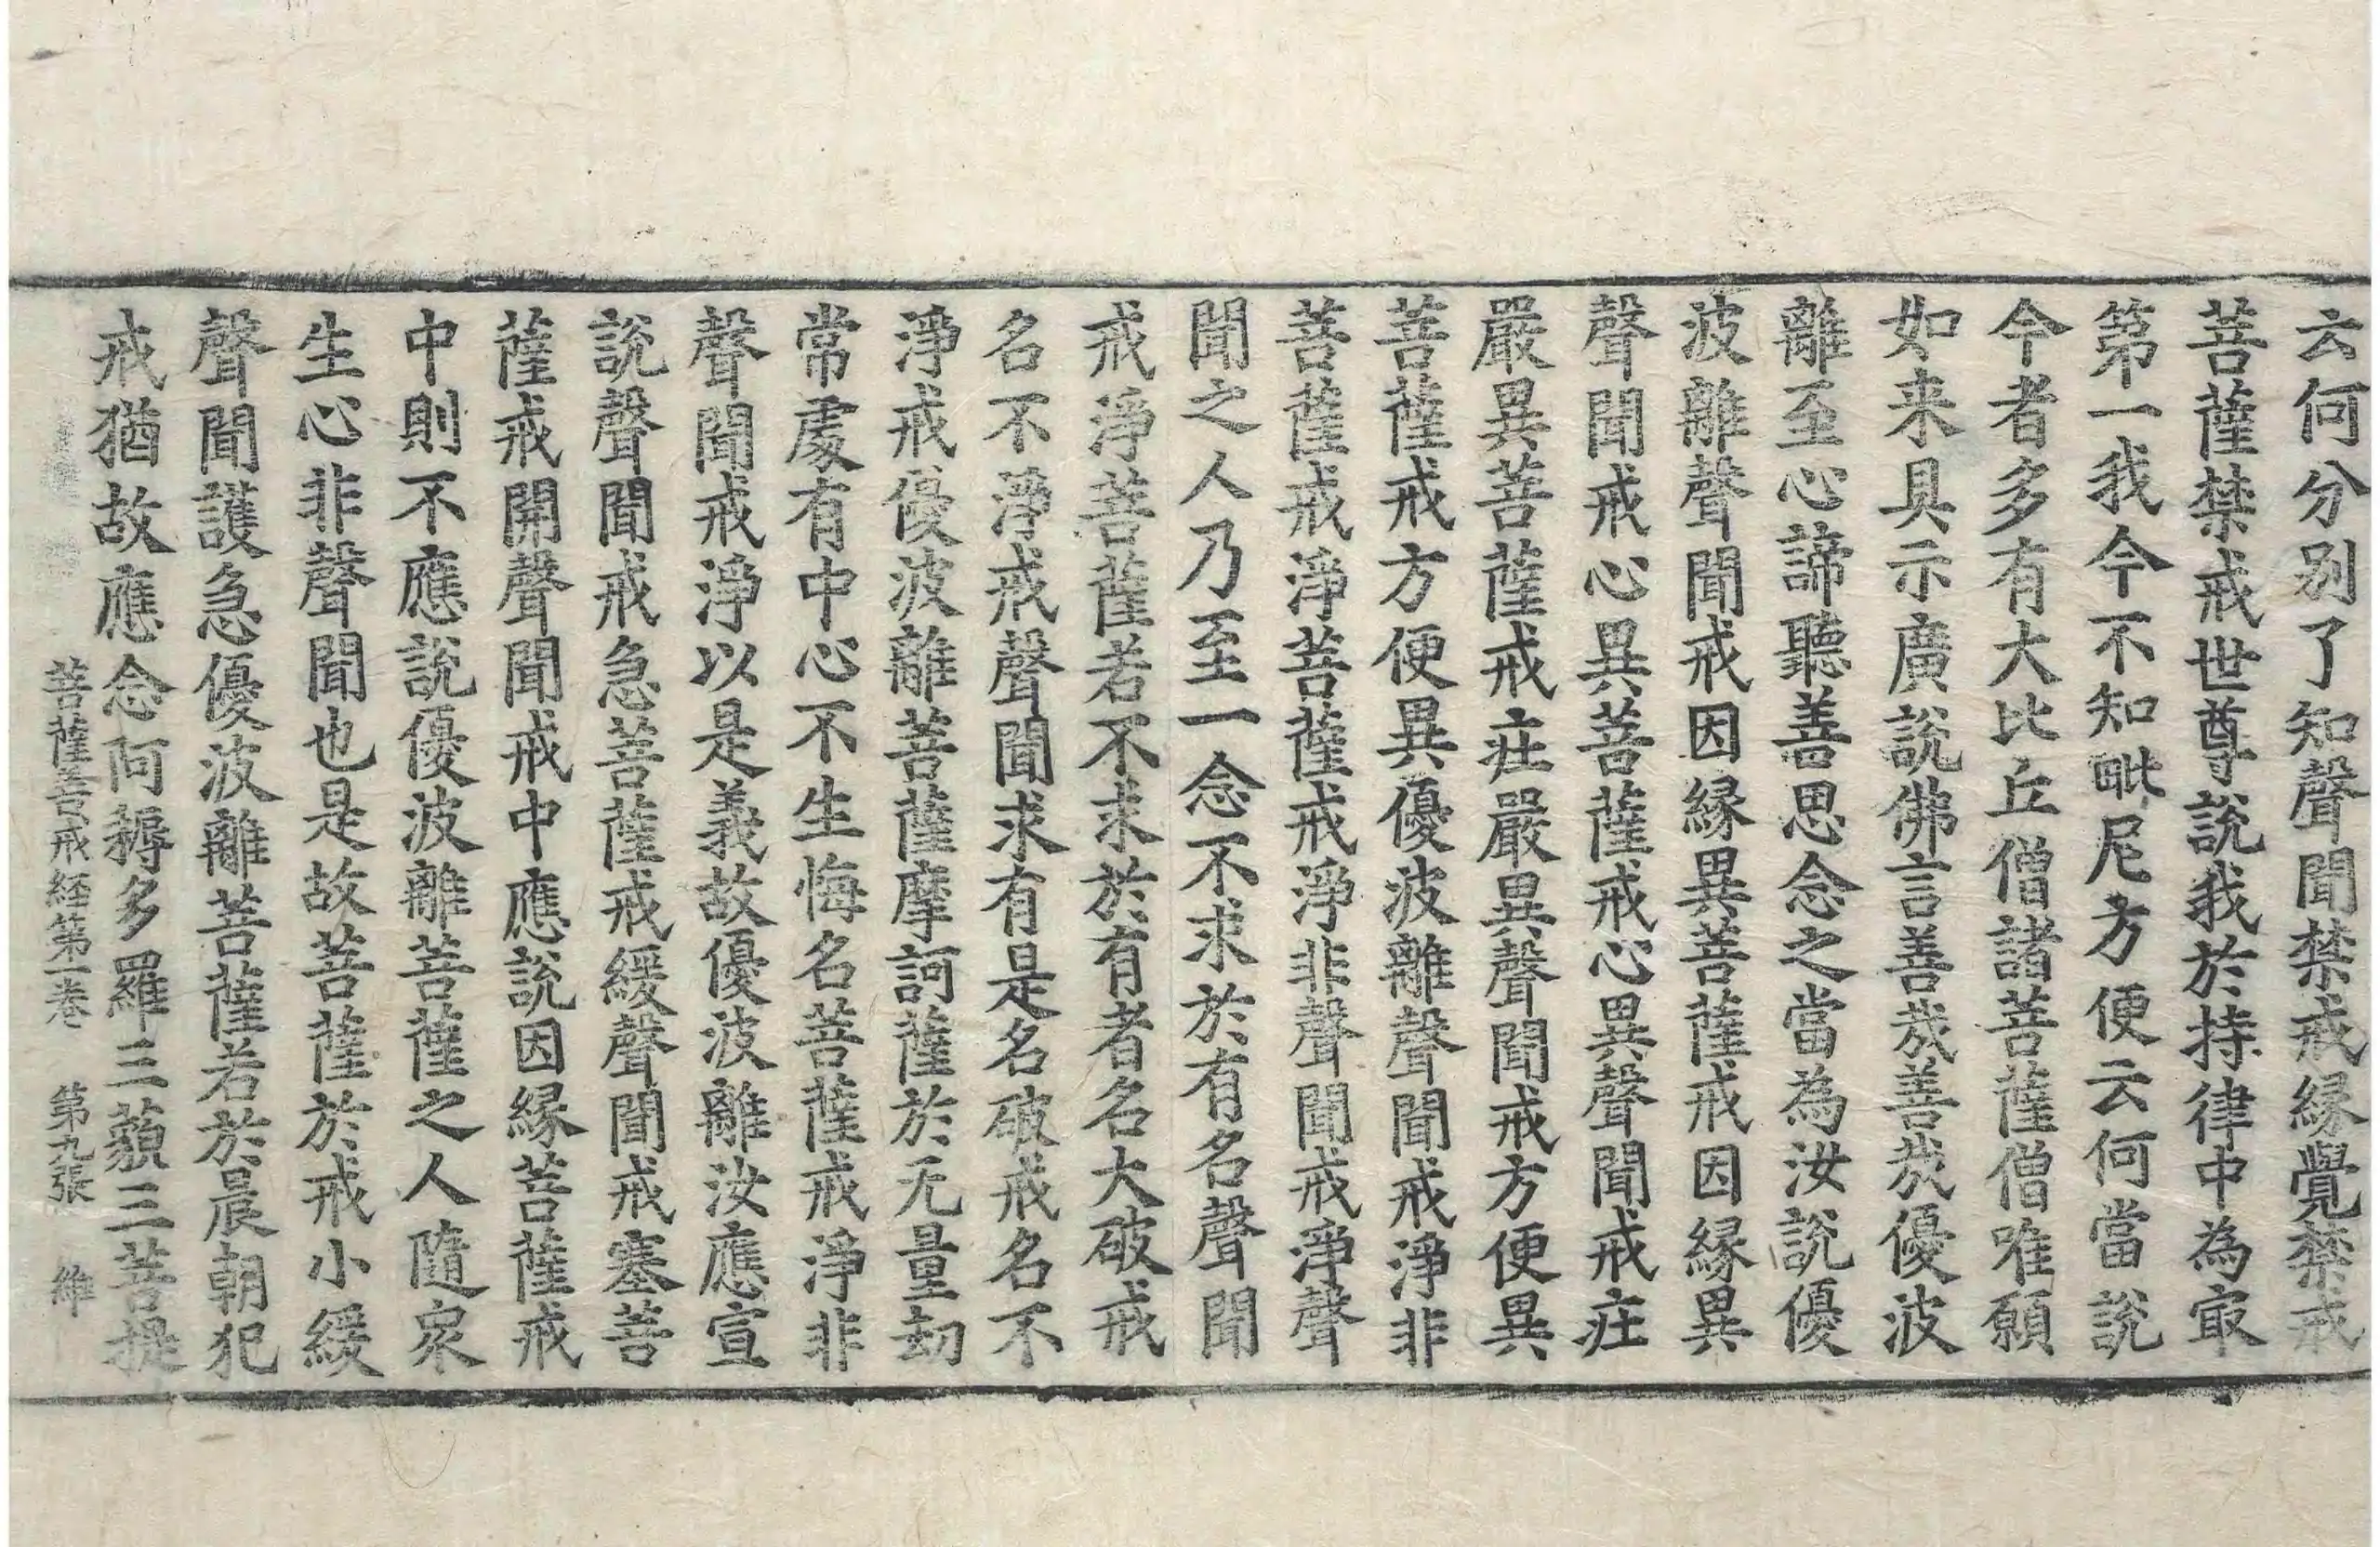 云何分别了知聲聞禁戒緣覺禁戒
菩薩禁戒世尊說我於持律中為㝡
第一我今不知毗尼方便云何當說
今者多有大比丘僧諸菩薩僧唯願
如来具示廣說佛言善㢤善㢤優波
離至心諦聽善思念之當為汝說優
波離聲聞戒因緣異菩薩戒因緣異
聲聞戒心異菩薩戒心異聲聞戒莊
嚴異菩薩戒莊嚴異聲聞戒方便異
菩薩戒方便異優波離聲聞戒淨非
菩薩戒淨菩薩戒淨非聲聞戒淨聲
聞之人乃至一念不求於有名聲聞
戒淨菩薩若不求於有者名大破戒
名不淨戒聲聞求有是名破戒名不
淨戒優波離菩薩摩訶薩於无量劫
常處有中心不生悔名菩薩戒淨非
聲聞戒淨以是義故優波離汝應宣
說聲聞戒急菩薩戒緩聲聞戒塞菩
薩戒開聲聞戒中應說因緣菩薩戒
中則不應說優波離菩薩之人隨衆
生心非聲聞也是故菩薩於戒小緩
聲聞護急優波離菩薩若於晨朝犯
戒猶故應念阿耨多羅三藐三菩提
菩薩善戒経第一卷　第九張　維